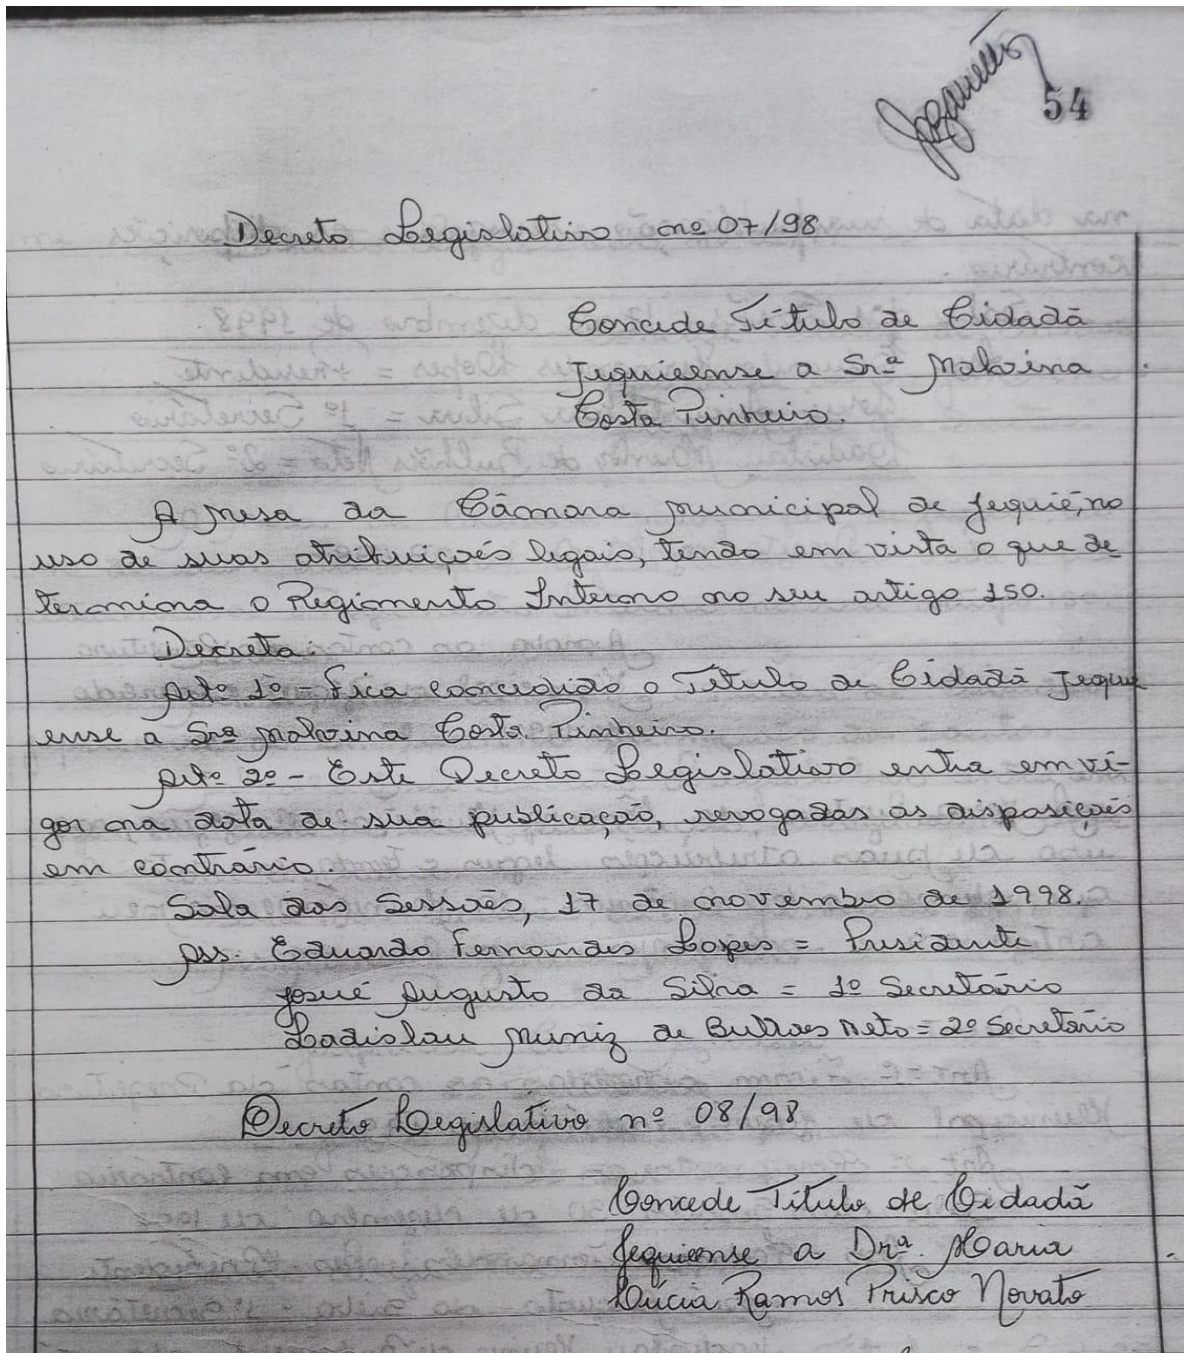 54
Decreto Legislativo nº 07/98
Concede Título de Cidadã
Jequieense a Srª Malvina
Costa Pinheiro.
A Mesa da Câmara Municipal de Jequié, no
uso de suas atribuições legais, tendo em vista o que de
termina o Regimento Interno no seu artigo 150.
Decreta:
Artº 1º - Fica concedido o Título de Cidadã Jequi
ense a Srª Malvina Costa Pinheiro.
Artº 2º - Este Decreto Legislativo entra em vi-
gor na data de sua publicação, revogadas as disposições
em contrário.
Sala das Sessões, 17 de novembro de 1998.
Ass. Eduardo Fernandes Lopes = Presidente
Josué Augusto da Silva = 1º Secretário
Ladislau Muniz de Bulhões Neto = 2º Secretário
Decreto Legislativo nº 08/98
Concede Título de Cidadã
Jequieense a Drª. Maria
Lúcia Ramos Prisco Novato